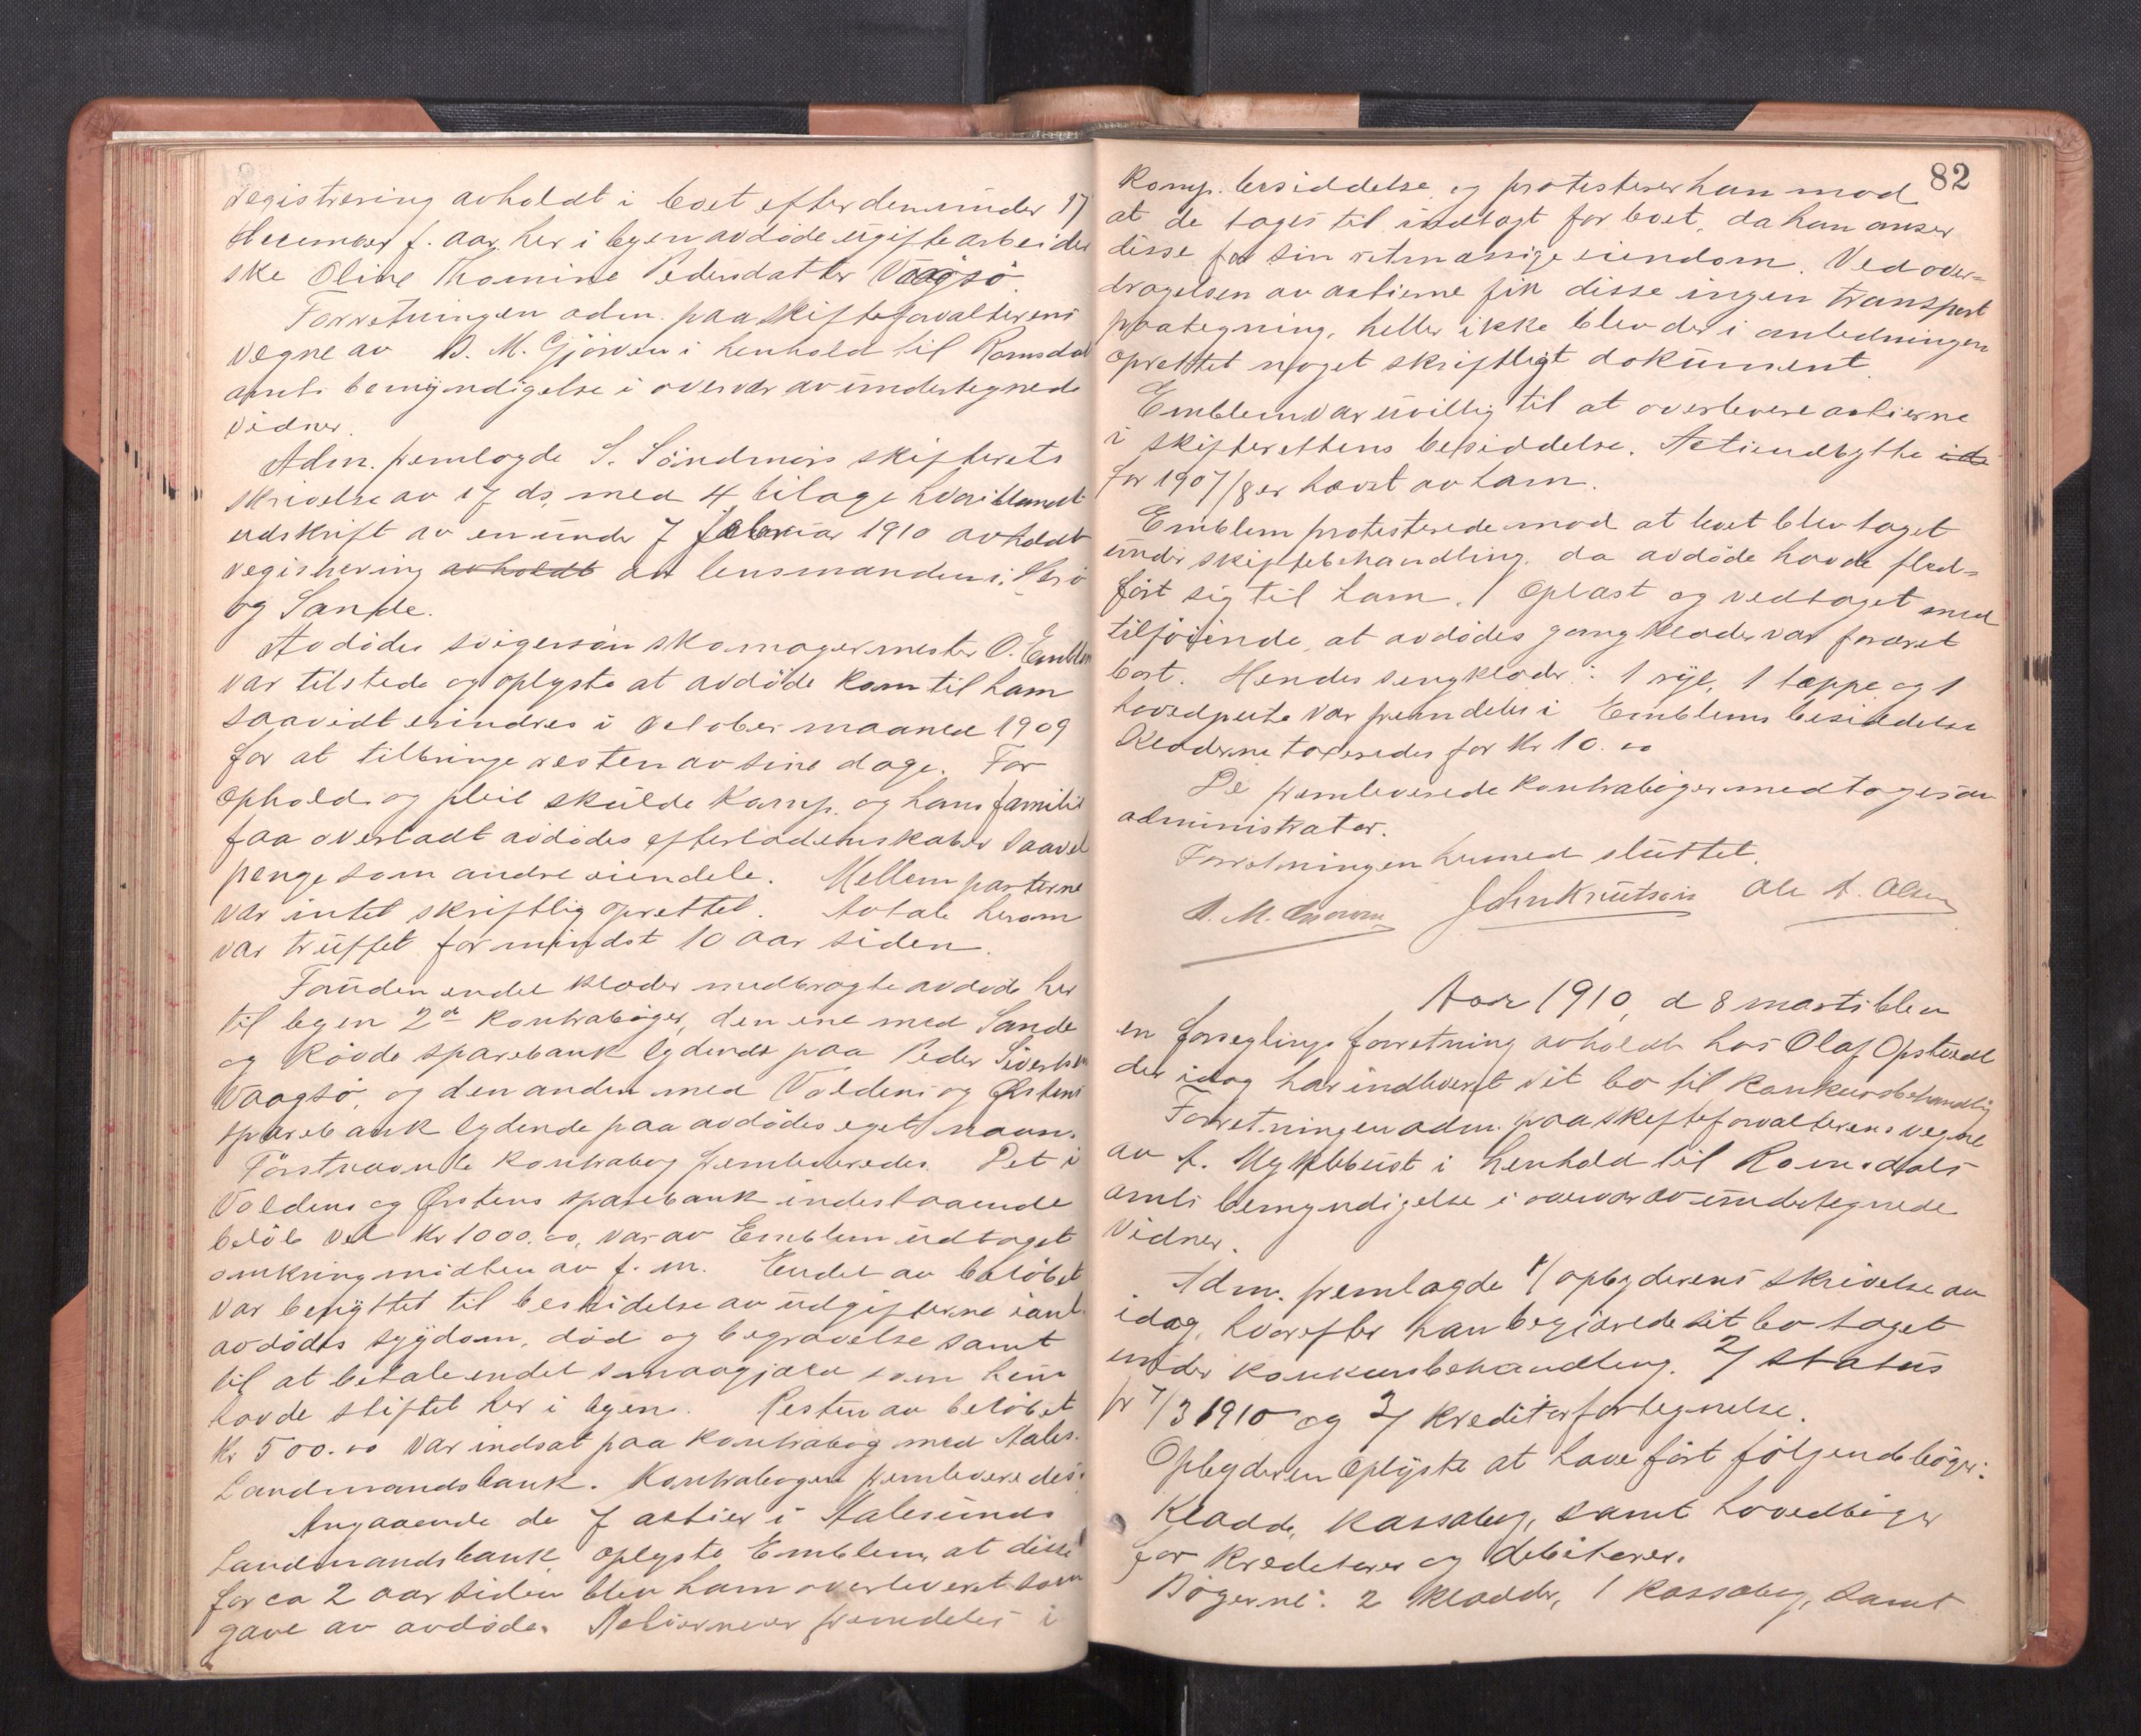 registrering avholdt i boet efter den under 17
december f. aar her i byen avdöde ugifte arbeider
ske Oline Thomine Pedersdatter Vaagsö.
Forretningen adm. paa skifteforvalterens
vegne av A. M. Gjörven i henhold til Romsdals
amts bemyndigelse i overvær av undertegnede
vidner.
Adm. fremlagde S. Söndmörs skifterets
skrivelse av 17 ds, med 4 bilage hvoriblandt
udskrift av en under 7 februar 1910 avholdt
registrering avholdt av lensmanden i Herö
og Sande.
Avdödes svigersön skomagermester O. Emblem
var tilstede og oplyste at avdöde kom til ham
saavidt erindres i october maaned 1909
for at tilbringe resten av sine dage. For
ophold og pleie skulde komp. og hans familie
faa overladt avdödes efterladenskaber saavel
penge som andre eiendele. Mellem parterne
var intet skriftlig oprettet. Avtale herom
var truffet for mindst 10 aar siden.
Foruden endel klæder medbragte avdöde her
til byen 2de kontraböger, den ene med Sande
og Rövde sparebank lydende paa Peder Sivertsen
Vaagsö, og den anden med Voldens og Ørstens
sparebank lydende paa avdödes eget navn.
Förstnævnte kontrabog fremleveredes. Det i
Voldens og Ørstens sparebank indestaaende
belöb vel Kr 1000.00, var av Emblem udtaget
omkring midten av f. m. Endel av belöbet
var benyttet til bestridelse av udgifterne i anl.
avdödes sygdom, död og begravelse samt
til at betale endel smaagjæld som hun
havde stiftet her i byen. Resten av belöbet
Kr 500.00 var indsat paa kontrabog med Aales.
Landmandsbank. Kontrabogen fremleveredes.
Angaaende de 7 aktier i Aalesunds
Landmandsbank oplyste Emblem, at disse
for ca 2 aar siden blev ham overleveret som
gave av avdöde. Aktierne er fremdeles i
82
komp. besiddelse og protesterer han mod
at de tages til indtægt for boet, da han anser
disse for sin retmæssige eiendom. Ved over=
dragelsen av aktierne fik disse ingen transport
paategning, heller ikke blev der i anledningen
oprettet noget skriftligt dokument.
Emblem var uvillig til at overlevere aktierne
i skifterettens besiddelse. Aktieudbytte
for 1907/8 er hævet av ham.
Emblem protesterede mod at boet blev taget
under skiftebehandling, da avdöde havde flæd=
fört sig til ham. Oplæst og vedtaget med
tilföiende, at avdödes gangklæder var foræret
bort. Hendes sengklæder: 1 rye, 1 tæppe og 1
hovedpute var fremdeles i Emblems besiddelse
Klæderne taxeredes for Kr 10.00
De fremleverede kontraböger medtoges av
administrator.
Forretningen hermed sluttet.
A. M. Gjörven John Knutsen Ole A. Olsen
Aar 1910, d 8 marts blev
en forseglingsforretning avholdt hos Olaf Opstad
der idag har indleveret sit bo til konkursbehandling
Forretningen adm. paa skifteforvalterens vegne
av A. Myklebust i henhold til Romsdals
amts bemyndigelse i overvær av undertegnede
vidner.
Adm. fremlagde 1/ opbyderens skrivelse av
idag, hvorefter han begjærede sit bo taget
under konkursbehandling. 2/ status
pr 7/3 1910 og 3/ kreditorfortegnelse.
Opbyderen oplyste at have fört fölgende böger:
Kladde, kassabog, samt hovedböger
for kreditorer og debitorer.
Bögerne: 2 kladder, 1 kassabog, samt